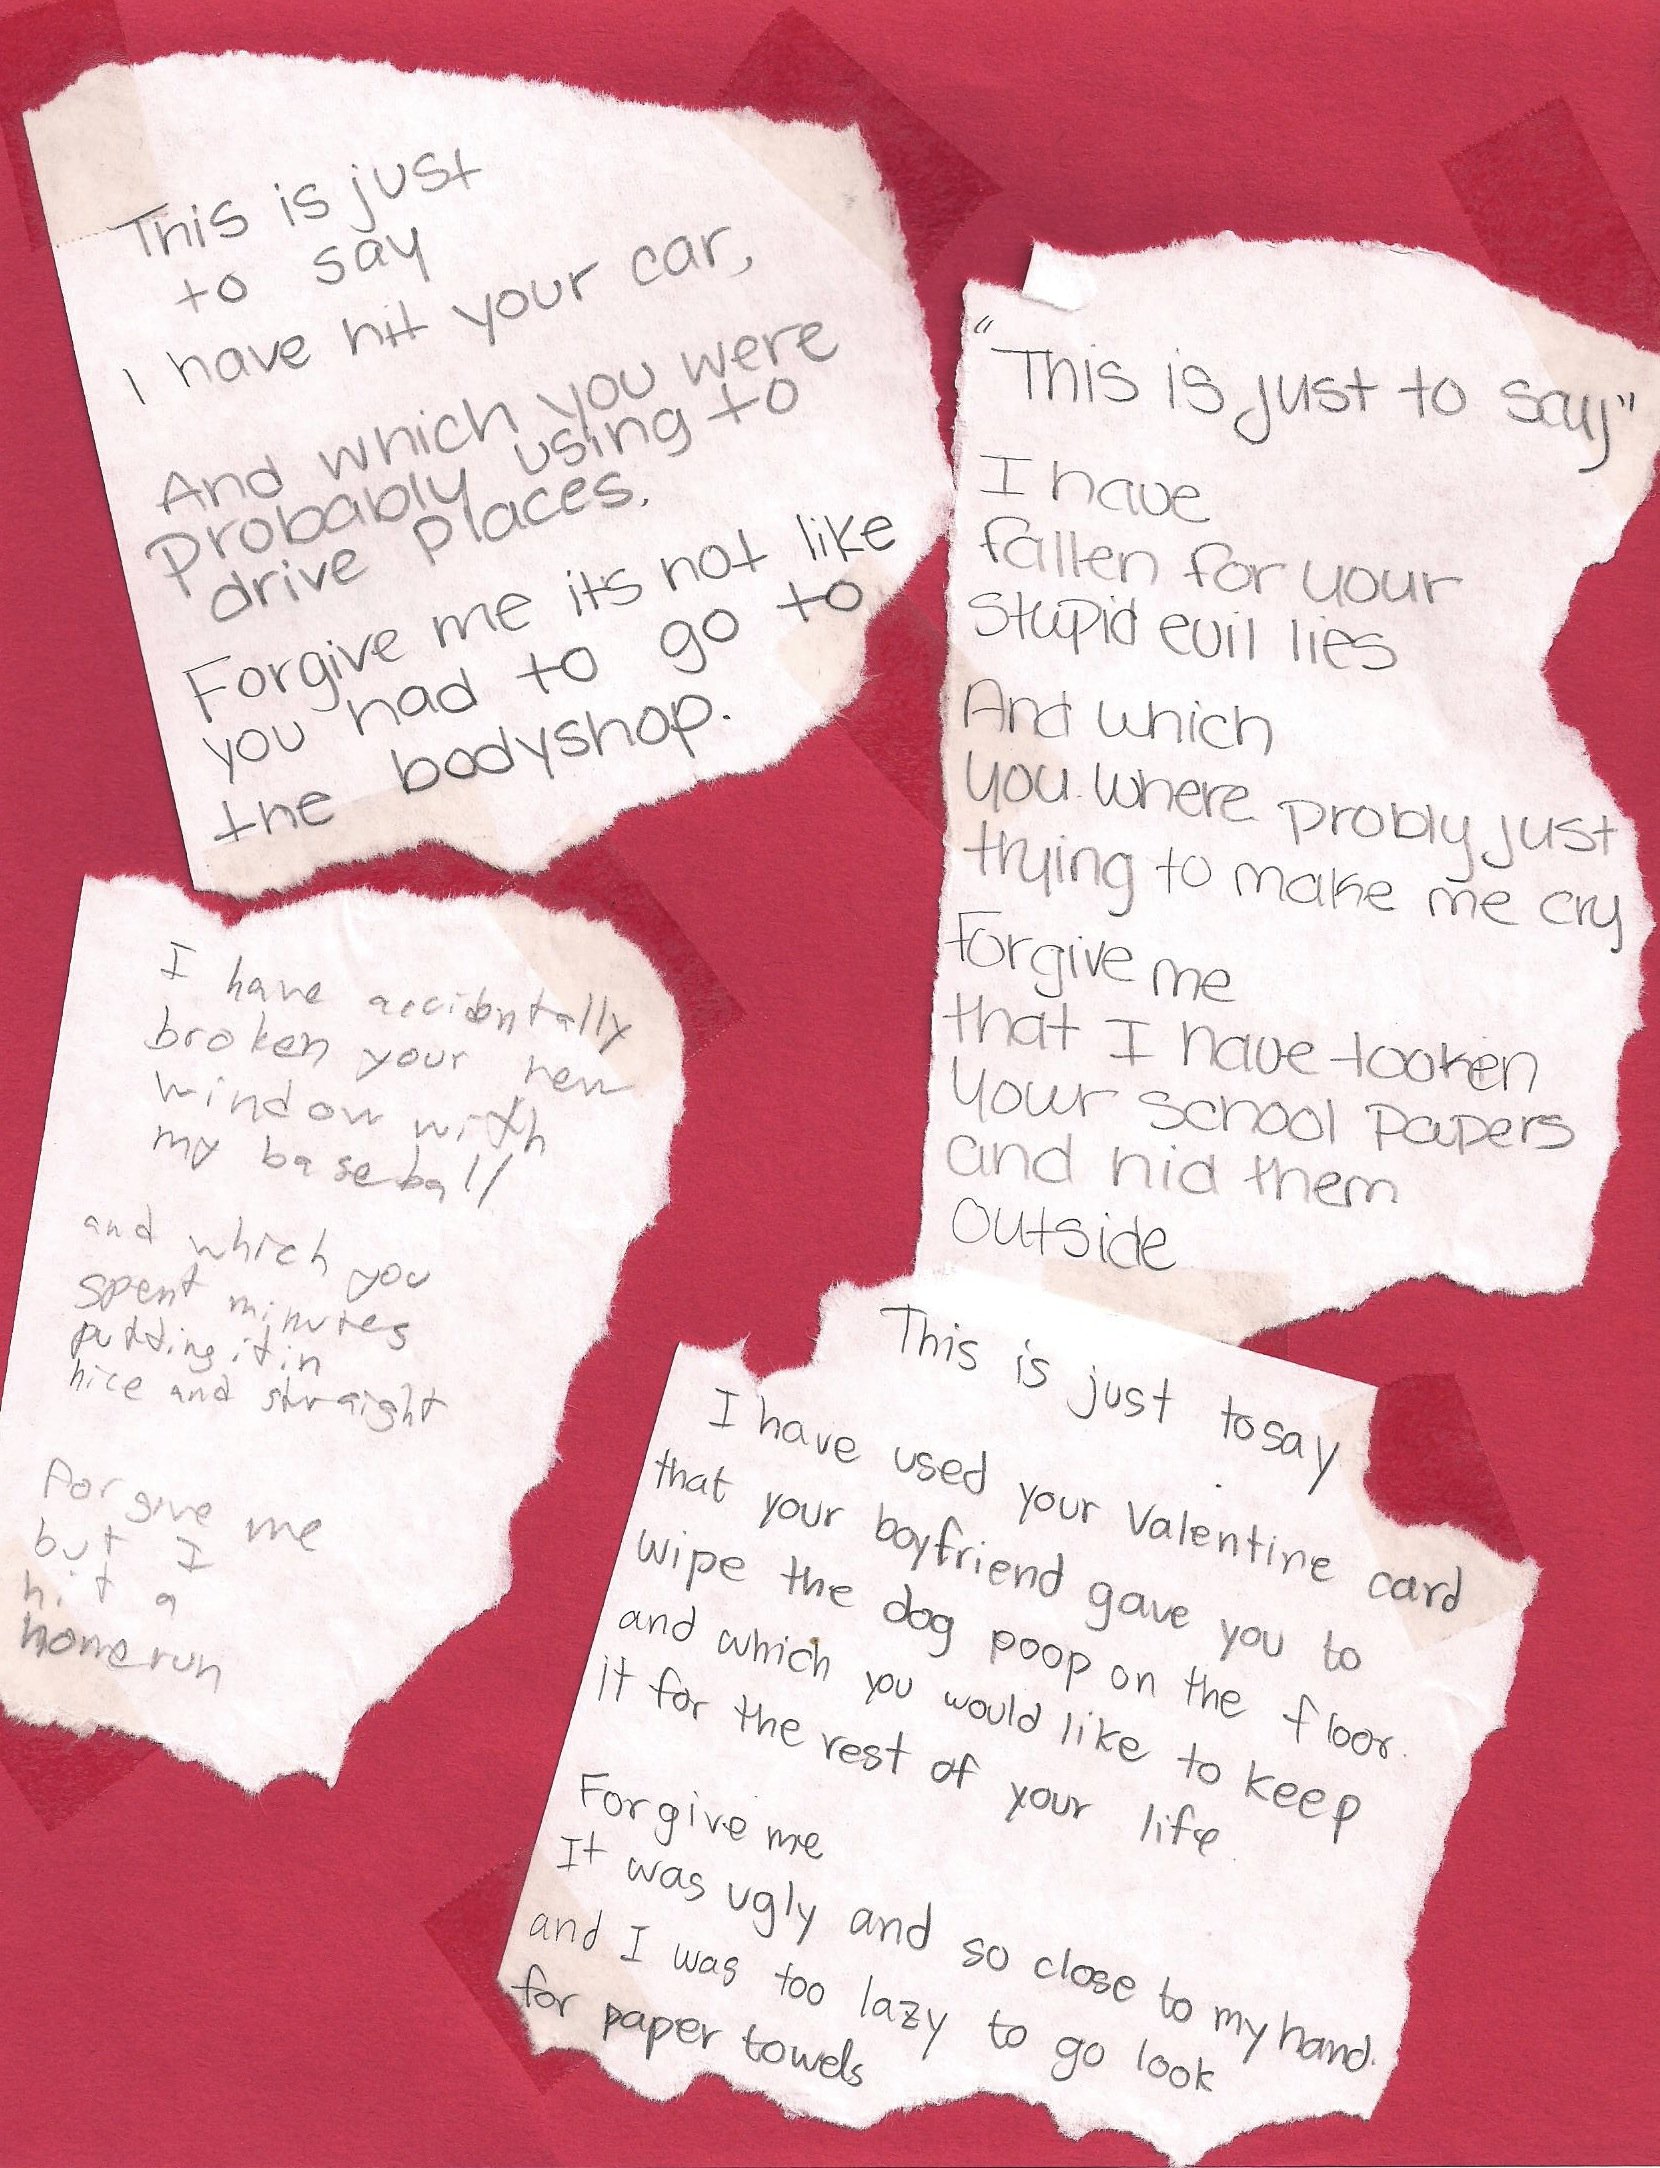 This is just
to say
I have hit your car,
And which you were
probably using to
drive places.
Forgive me its not like
you had to go to
the bodyshop.
"This is just to say"
I have
fallen for your
stupid evil lies
And which
you where probly just
trying to make me cry
Forgive me
that I have tooken
your school papers
and hid them
outside
I have accidentally
broken your new
window with
my baseball
and which you
spent minutes
putting it in
nice and straight
Forgive me
but I
hit a
homerun
This is just to say
I have used your Valentine card
that your boyfriend gave you to
wipe the dog poop on the floor.
and which you would like to keep
it for the rest of your life.
Forgive me
It was ugly and so close to my hand.
and I was too lazy to go look
for paper towels